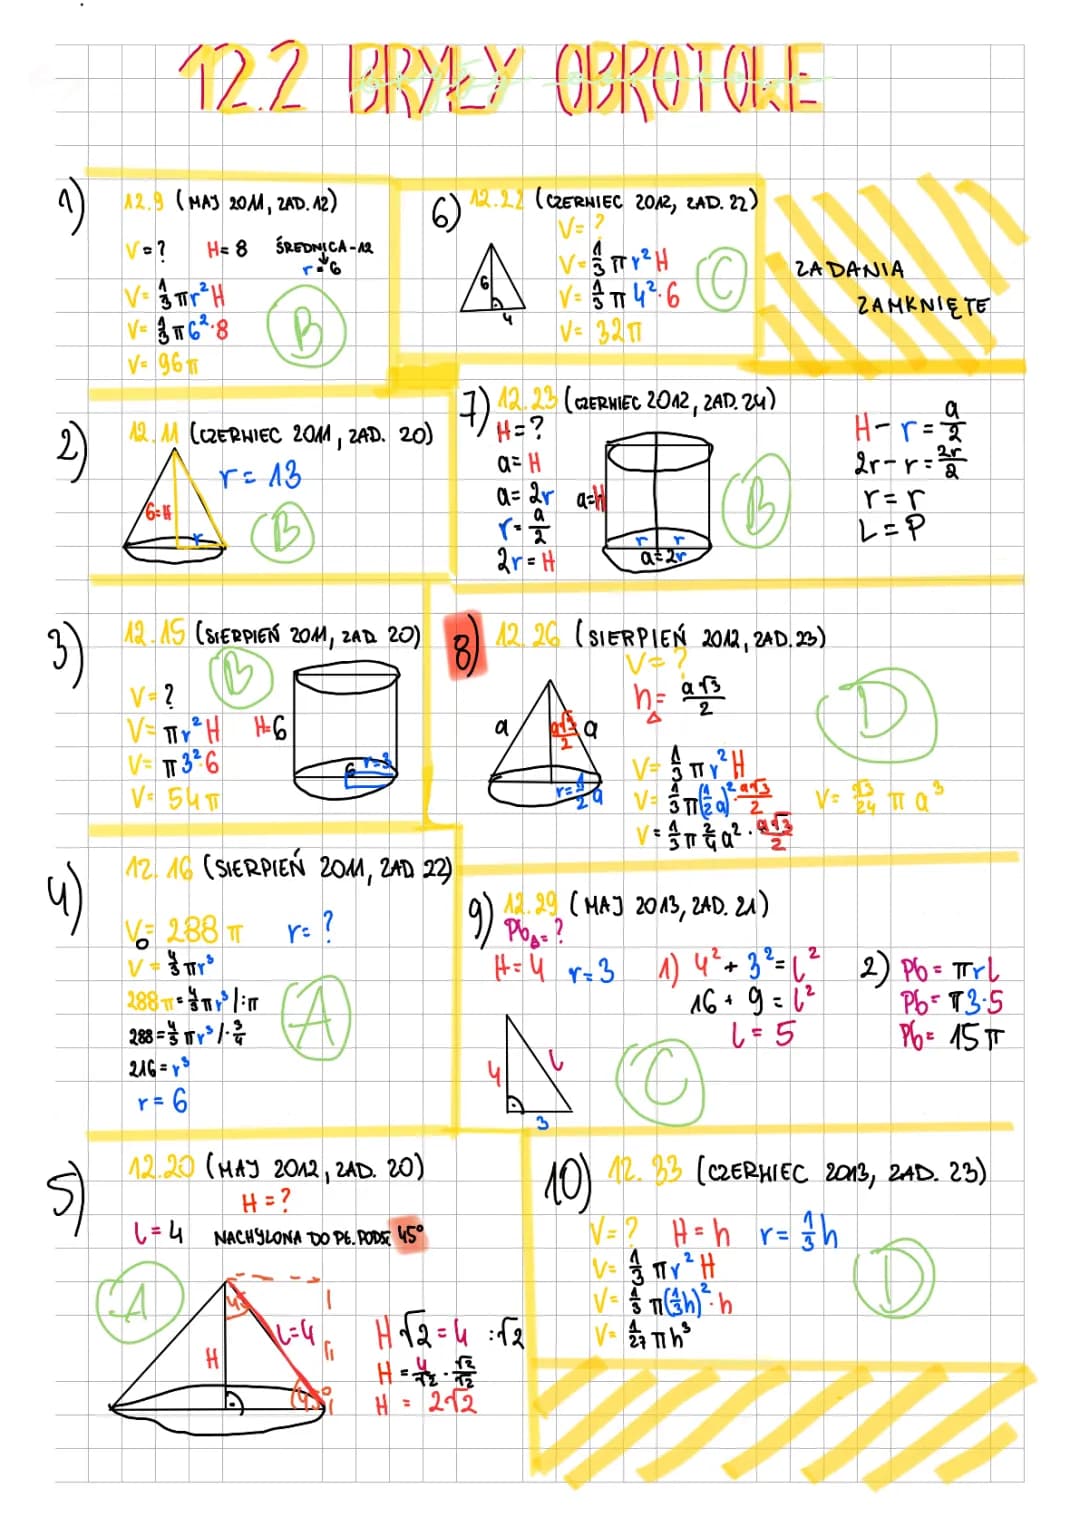 12.2 BRYŁY OBROTOWE
1) 12.9 (MAJ 2011, ZAD. 12)
V=? H=8 ŚREDNICA-12
r=6
V= 1/3 πr²H
V= 1/3 π6²·8
V= 96π
B
6) 12.22 (CZERWIEC 2012, ZAD. 22)
V=?
V= 1/3 πr²H
V= 1/3 π 4²·6
V= 32π
6
4
C
ZADANIA
ZAMKNIĘTE
2) 12.11 (CZERWIEC 2011, ZAD. 20)
r= 13
6=H
r
B
7) 12.23 (CZERWIEC 2012, ZAD. 24)
H=?
a=H
a= 2r
r= a/2
2r=H
a=H
r r
a=2r
B
H-r= a/2
2r-r= 2r/2
r=r
L=P
3) 12.15 (SIERPIEŃ 2011, ZAD 20)
B
V=?
V= πr²H H=6
V= π3²·6
V= 54π
6 r=3
8) 12.26 (SIERPIEŃ 2012, ZAD.23)
V=?
h△= a√3/2
a a√3/2 a
r=1/2 a
V= 1/3 πr²H
V= 1/3 π(1/2 a)²·a√3/2
V= √3/24 π a³
D
4) 12.16 (SIERPIEŃ 2011, ZAD 22)
V= 288π r=?
V= 4/3 πr³
288π= 4/3 πr³ /:π
288= 4/3 πr³ /·3/4
216=r³
r=6
A
9) 12.29 (MAJ 2013, ZAD. 21)
Pb△=?
H=4 r=3
4 l
3
1) 4²+3²=l²
16+9=l²
l=5
2) Pb= πrl
Pb= π3·5
Pb= 15π
C
5) 12.20 (MAJ 2012, ZAD. 20)
H=?
l=4 NACHYLONA DO PŁ. PODST 45°
A
H
l=4
H√2=4 :√2
H= 4/√2 · √2/√2
H = 2√2
10) 12.33 (CZERWIEC 2013, ZAD. 23)
V=? H=h r= 1/3 h
V= 1/3 πr²H
V= 1/3 π(1/3h)²·h
V= 1/27 πh³
D